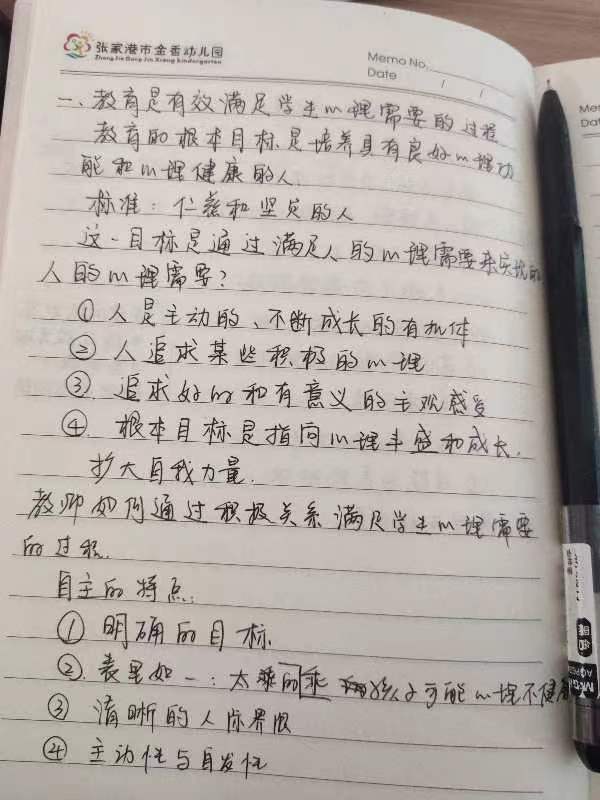 张家港市金香幼儿园
Zhang Jia Gang Jin Xiang kindergarten
Memo No.
Date / /
一、教育是有效满足学生心理需要的过程
教育的根本目标是培养具有良好心理功
能和心理健康的人.
标准：仁慈和坚定的人
这一目标是通过满足人的心理需要来实现的
人的心理需要？
① 人是主动的、不断成长的有机体
② 人追求某些积极的心理
③ 追求好的和有意义的主观感受
④ 根本目标是指向心理丰盛和成长.
扩大自我力量.
教师如何通过积极关系满足学生心理需要
的过程.
自主的特点：
① 明确的目标
② 表里如一：太乖的孩子可能心理不健康
③ 清晰的人际界限
④ 主动性与自发性